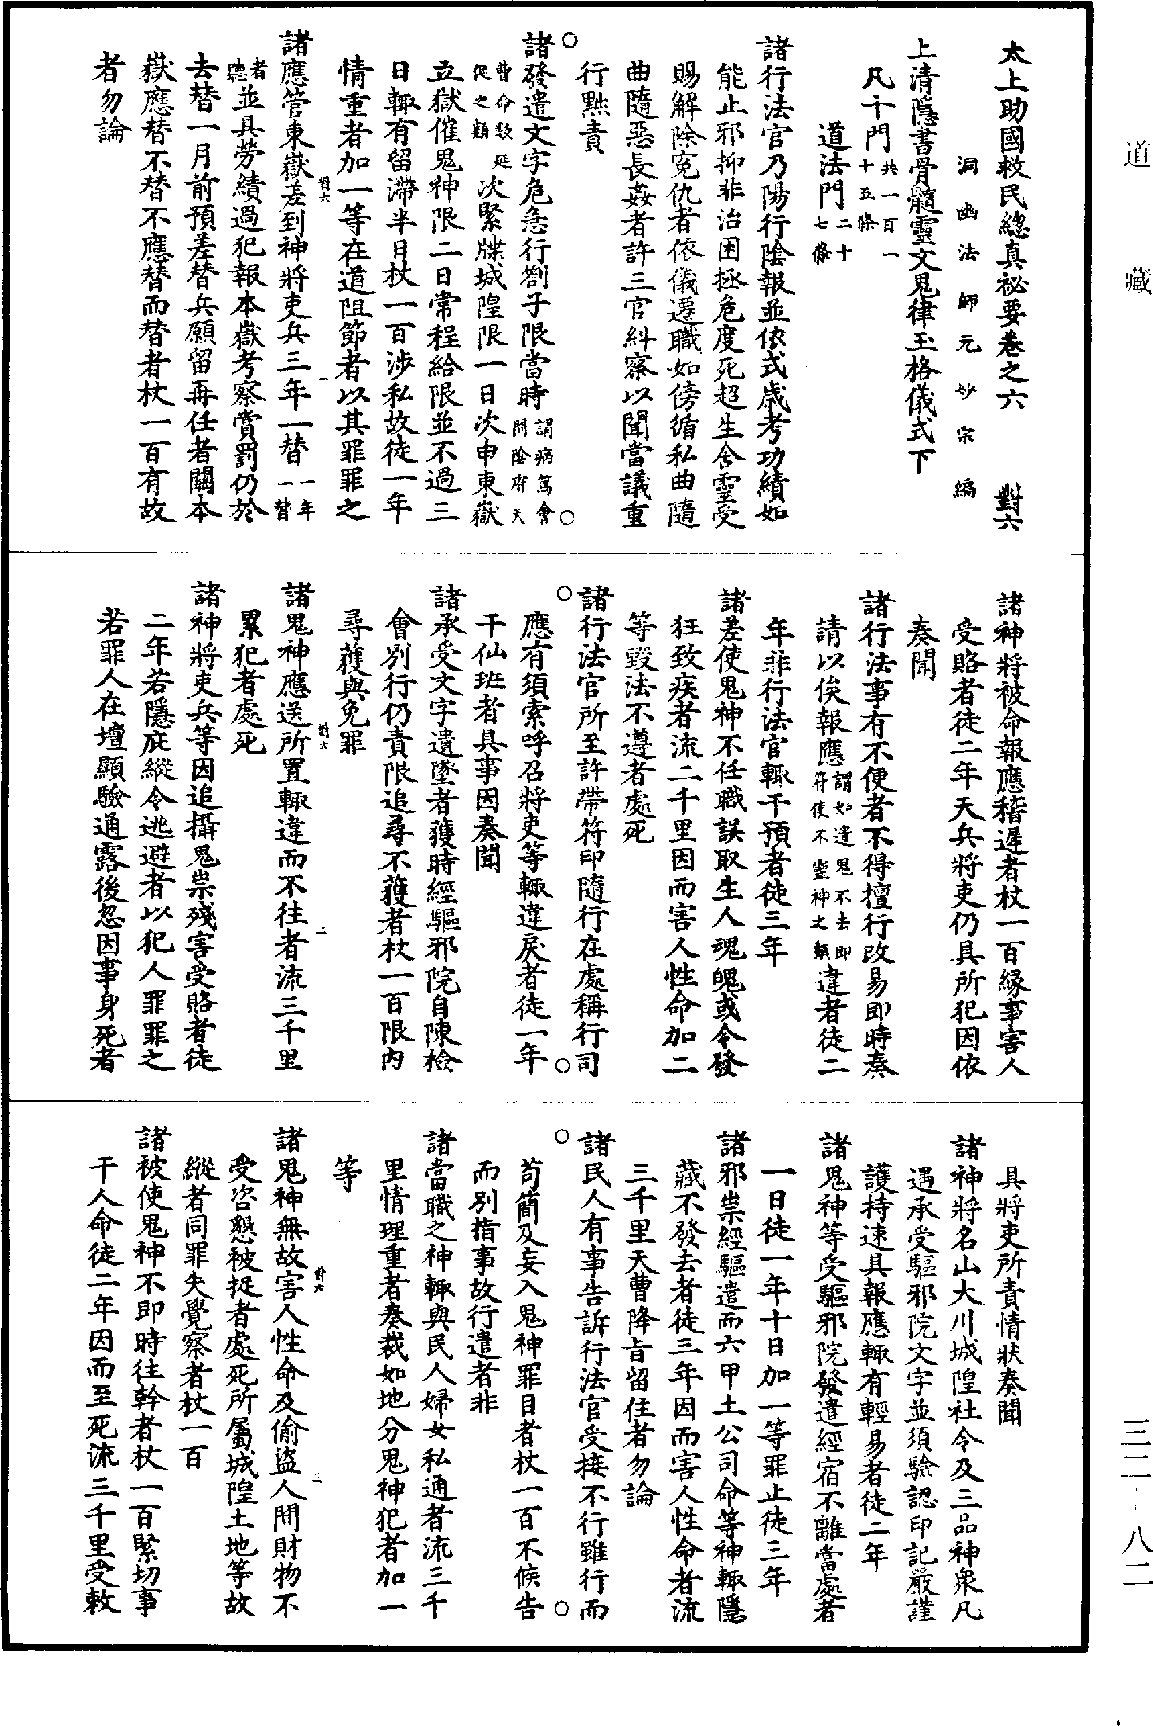 道藏
三二·八二
太上助國救民總真祕要卷之六　對六
洞幽法師元妙宗編
上清隱書骨髓靈文鬼律玉格儀式下
凡千門共一百一十五條
道法門二十七條
諸行法官乃陽行陰報並依式歲考功績如
能止邪抑非治困拯危度死超生舍靈受
賜解除冤仇者依儀遷職如傍循私曲隨
曲隨惡長姦者許三官糾察以聞當議重
行黜責
諸發遣文字危急行劄子限當時謂病篤會問陰府天
曹命教延促之類次緊牒城隍限一日次申東嶽
立獄催鬼神限二日常程給限並不過三
日輒有留滯半日杖一百涉私故徒一年
情重者加一等在道阻節者以其罪罪之
諸應管東嶽差到神將吏兵三年一替一年一替
者聽並具勞績過犯報本嶽考察賞罰仍於
去替一月前預差替兵願留再任者關本
嶽應替不替不應替而替者杖一百有故
者勿論
諸神將被命報應稽遲者杖一百緣事害人
受賂者徒二年天兵將吏仍具所犯因依
奏聞
諸行法事有不便者不得擅行改易即時奏
請以俟報應謂如違鬼不去即符後不靈神之類違者徒二
年非行法官輒干預者徒三年
諸差使鬼神不任職誤取生人魂魄或令發
狂致疾者流二千里因而害人性命加二
等毀法不遵者處死
諸行法官所至許帶符印隨行在處稱行司
應有須索呼召將吏等輒違戾者徒一年
干仙班者具事因奏聞
諸承受文字遺墜者獲時經驅邪院自陳檢
會別行仍責限追尋不獲者杖一百限內
尋獲與免罪
諸鬼神應送所置輒違而不往者流三千里
累犯者處死
諸神將吏兵等因追攝鬼祟殘害受賂者徒
二年若隱庇縱令逃避者以犯人罪罪之
若罪人在壇顯驗通露後忽因事身死者
具將吏所責情狀奏聞
諸神將名山大川城隍社令及三品神眾凡
遇承受驅邪院文字並須驗認印記嚴謹
護持速具報應輒有輕易者徒二年
諸鬼神等受驅邪院發遣經宿不離當處者
一日徒一年十日加一等罪止徒三年
諸邪祟經驅遣而六甲土公司命等神輒隱
藏不發去者徒三年因而害人性命者流
三千里天曹降旨留住者勿論
諸民人有事告訴行法官受接不行雖行而
苟簡及妄入鬼神罪目者杖一百不候告
而別指事故行遣者非
諸當職之神輒與民人婦女私通者流三千
里情理重者奏裁如地分鬼神犯者加一
等
諸鬼神無故害人性命及偷盜人間財物不
受咨懇被捉者處死所屬城隍土地等故
縱者同罪失覺察者杖一百
諸被使鬼神不即時往幹者杖一百緊切事
干人命徒二年因而至死流三千里受敕